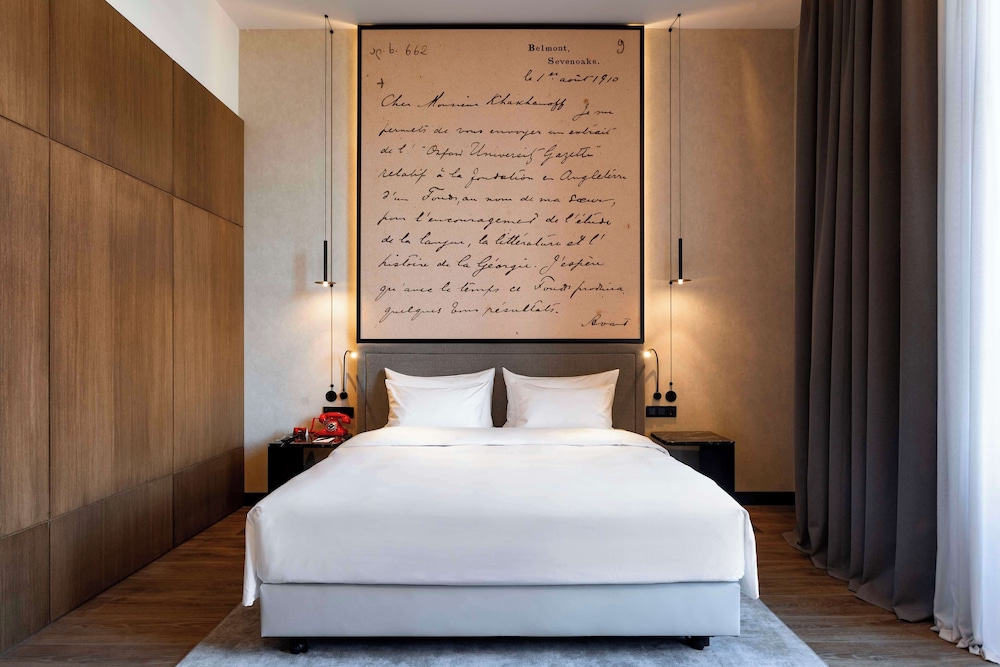 n. b. 662
9
Belmont,
Sevenoaks.
le 1er août 1910
Cher Monsieur Khakhanoff Je me
permets de vous envoyer un extrait
de l' "Oxford University Gazette"
relatif à la fondation en Angleterre
d'un Fonds, au nom de ma sœur,
pour l'encouragement de l'étude
de la langue, la littérature et l'
histoire de la Géorgie. J'espère
qu'avec le temps ce Fonds produira
quelques bons résultats.
Avant